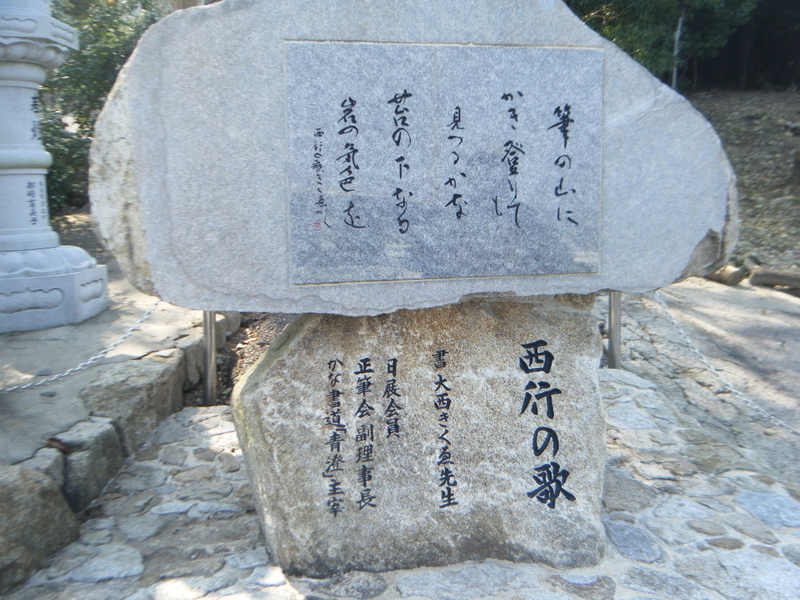 筆の山に
かき登りて
見つるかな
苔の下なる
岩の気色を
西行の歌 きくゑ かく
西行の歌
書 大西きくゑ先生
日展会員
正筆会 副理事長
かな書道「青澄」主宰